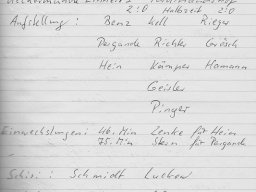 2:0 Halbzeit 2:0
Aufstellung : Benz Kell Rieger
Dergande Richter Grosch
Hein Kämper Homann
Geisler
Pinger
Einwechslungen: 46. Min Lenke für Hein
75. Min Stern für Dergande
Schiri : Schmidt Luckow